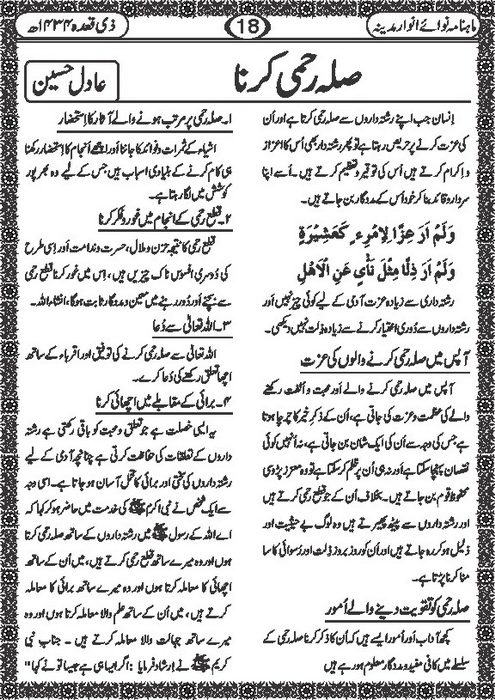 ماہنامہ نوائے انوار مدینہ
18
ذی قعدہ ۱۴۳۴ھ
صلہ رحمی کرنا
عادل حسین
اِنسان جب اپنے رشتہ داروں سے صلہ رحمی کرتا ہے اور اُن
کی عزت کرنے پر حریص رہتا ہے تو پھر رشتہ دار بھی اُس کا اعزاز
و اِکرام کرتے ہیں اُس کی توقیر و تعظیم کرتے ہیں۔ اُسے اپنا
سردار و قائد بنا کر خود اُس کے مددگار بن جاتے ہیں۔
وَلَمْ اَرَ عِزًّا لِامْرِءٍ كَعَشِيْرَةٍ
وَلَمْ اَرَ ذُلًّا مِثْلَ نَأْيٍ عَنِ الْاَهْلِ
رشتہ داری سے زیادہ عزت آدمی کے لیے کوئی چیز نہیں اور
رشتہ داروں سے دُوری اختیار کرنے سے زیادہ ذلت نہیں دیکھی۔
آپس میں صلہ رحمی کرنے والوں کی عزت
آپس میں صلہ رحمی کرنے والے اور محبت و اُلفت رکھنے
والے کی عظمت و عزت کی جاتی ہے، اُن کے ذکرِ خیر کا چرچا ہوتا
ہے جس کی وجہ سے اُن کی ایک شان بن جاتی ہے، نہ اُنہیں کوئی
نقصان پہنچا سکتا ہے اور نہ ہی اُن پر ظلم کر سکتا ہے تو وہ معزز پڑوسی
محفوظ قوم بن جاتے ہیں۔ بخلاف اُن کے جو قطع رحمی کرتے ہیں
اور رشتہ داروں سے پیٹھ پھیرتے ہیں وہ لوگ بے حیثیت اور
ذلیل ہو کر رہ جاتے ہیں اور اُن کو روز بروز ذلت اور رُسوائی کا سا
منا کرنا پڑتا ہے۔
صلہ رحمی کو تقویت دینے والے اُمور
کچھ آداب اور اُمور ایسے ہیں کہ اُن کا ذکر کرنا صلہ رحمی کے
سلسلے میں کافی مفید و مددگار معلوم ہو رہے ہیں
۱۔ صلہ رحمی پر مرتب ہونے والے آثار کا اِستحضار
اشیاء کے ثمرات و فوائد کا جاننا اور اچھے اَنجام کا اِستحضار رکھنا
ہی کام کرنے کے بنیادی اسباب ہیں جس کے لیے وہ بھرپور
کوشش میں لگا رہتا ہے۔
۲۔ قطع رحمی کے انجام میں غور و فکر کرنا
قطع رحمی کا نتیجہ حزن و ملال، حسرت و ندامت اور اِسی طرح
کی دُوسری افسوس ناک چیزیں ہیں، اِس میں غور کرنا قطع رحمی
سے بچنے اور دُور رہنے میں معین و مددگار ثابت ہوگا، انشاء اللہ۔
۳۔ اللہ تعالیٰ سے دُعا
اللہ تعالیٰ سے صلہ رحمی کرنے کی توفیق اور اقرباء کے ساتھ
اچھا تعلق رکھنے کی دُعا کرے۔
۴۔ برائی کے مقابلے میں اچھائی کرنا
یہ ایسی خصلت ہے جو تعلق و محبت کو باقی رکھتی ہے رشتہ
داروں کے تعلقات کی حفاظت کرتی ہے چنانچہ آدمی کے لیے
رشتہ داروں کی سختی اور برائی کا تحمل آسان ہو جاتا ہے۔ اِسی وجہ
سے ایک شخص نے نبی اکرم ﷺ کی خدمت میں حاضر ہو کر کہا کہ
اے اللہ کے رسول ﷺ میں رشتہ داروں کے ساتھ صلہ رحمی کرتا
ہوں اور وہ میرے ساتھ قطع رحمی کرتے ہیں، میں اُن کے ساتھ
اچھائی کا معاملہ کرتا ہوں اور وہ میرے ساتھ برائی کا معاملہ
کرتے ہیں، میں اُن کے ساتھ حلم والا معاملہ کرتا ہوں اور وہ
میرے ساتھ جہالت والا معاملہ کرتے ہیں۔ جناب نبی
کریم ﷺ نے اِرشاد فرمایا : اگر ایسا ہی ہے جیسا تو نے کہا"